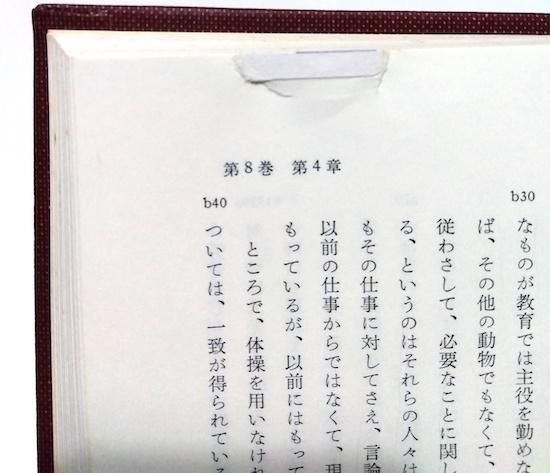 第8巻 第4章
b30
なものが教育では主役を勤めな
ば、その他の動物でもなくて、
従わさして、必要なことに関し
る、というのはそれらの人々は
もその仕事に対してさえ、言論
以前の仕事からではなくて、現
もっているが、以前にはもって
b40
ところで、体操を用いなけれ
ついては、一致が得られている